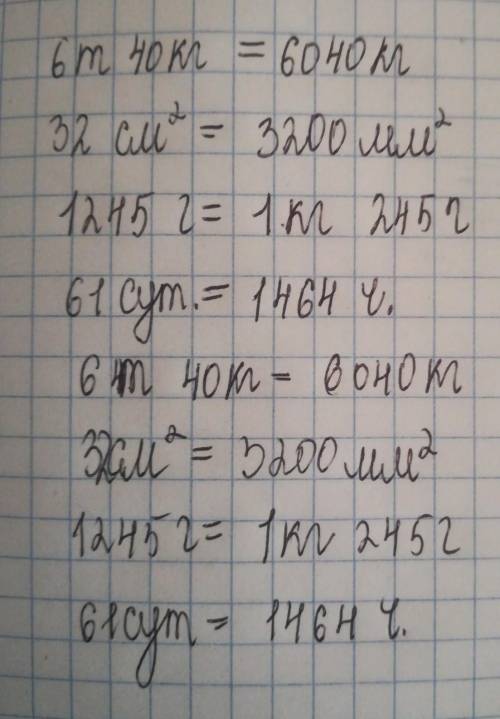 6т 40кг = 6040кг
32 см² = 3200 мм²
1245 г = 1 кг 245г
61 сут. = 1464 ч.
6т 40кг = 6040кг
32см² = 3200 мм²
1245 г = 1кг 245г
61сут = 1464 ч.